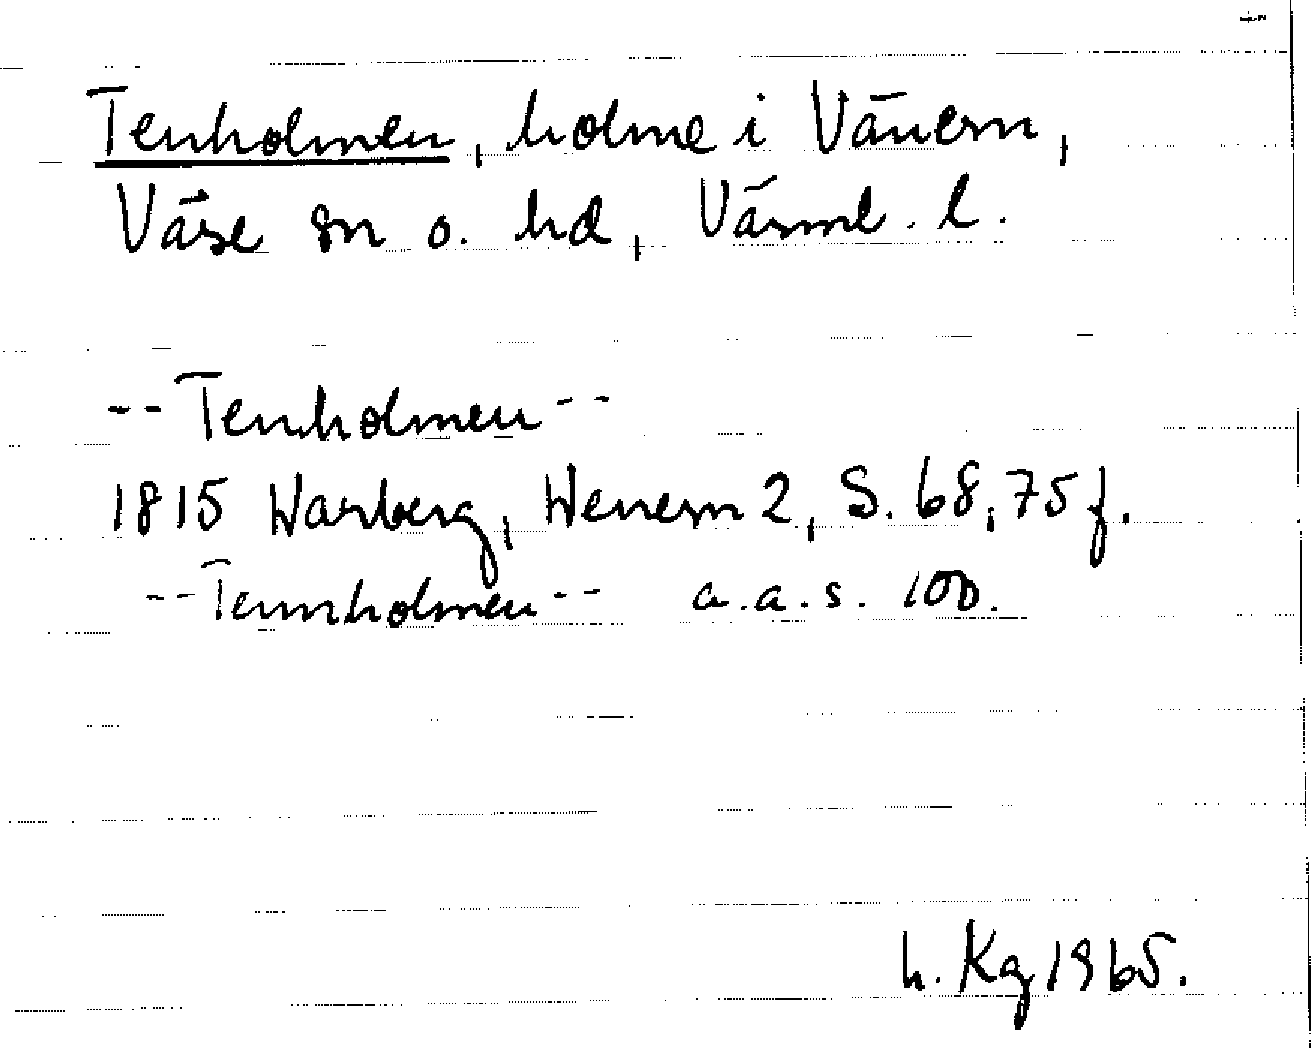 Tenholmen, holme i Vänern,
Väse sn o. hd, Värml. l.
-- Tenholmen --
1815 Warberg, Wenern 2, S. 68, 75 f.
-- Tennholmen -- a.a. s. 100.
h. Kg 1965.